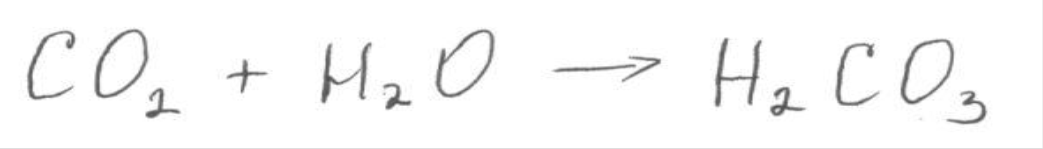 CO₂ + H₂O → H₂CO₃